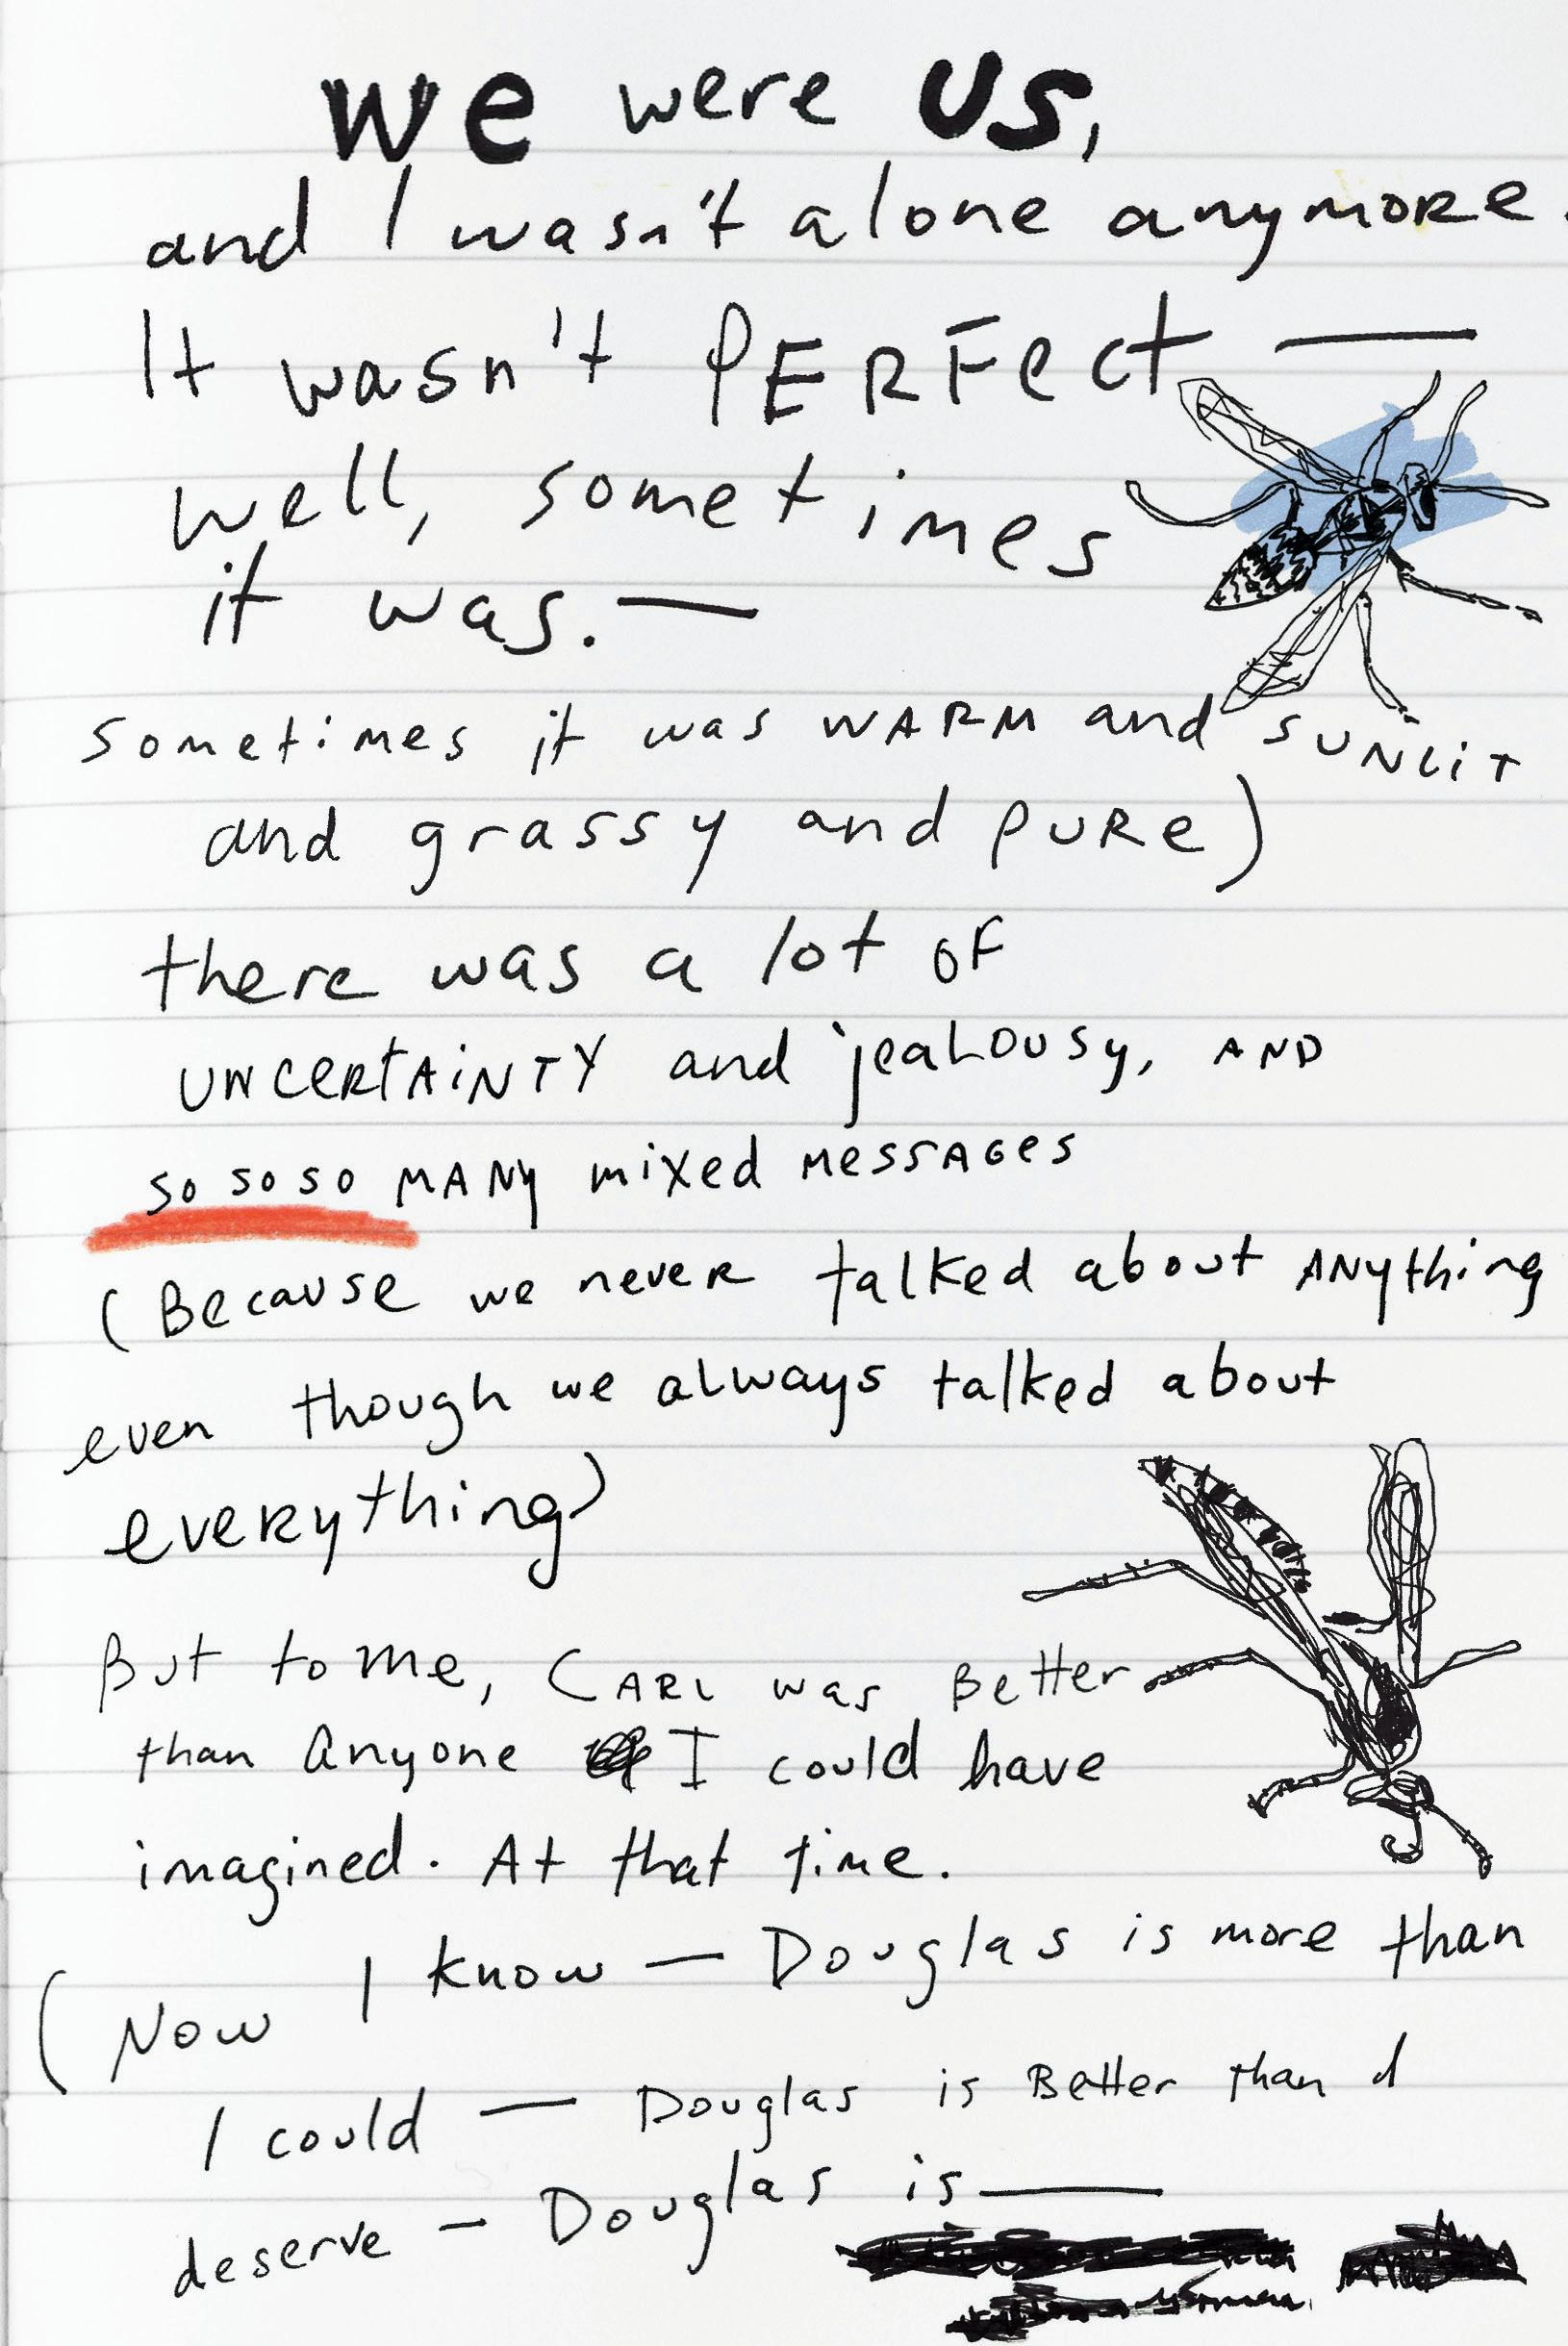 We were US,
and I wasn't alone anymore.
It wasn't PERFect —
well, sometimes
it was. —
sometimes it was WARM and SUNLiT
and grassy and PURe)
there was a lot of
UNCeRtAiNTY and jeaLOUSy, AND
so so so MANy mixed MessAGes
(Because we never talked about ANything
even though we always talked about
everything)
But to me, CARL was Better
than Anyone I could have
imagined. At that time.
(Now I know — Douglas is more than
I could — Douglas is Better than I
deserve — Douglas is —